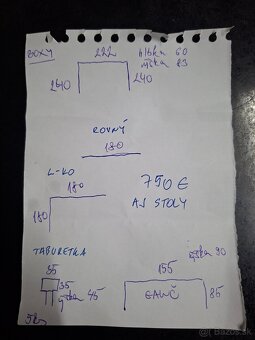 BOXY
222
hĺbka 60
výška 83
240
240
ROVNÝ
180
L-KO
180
180
750 €
AJ STOLY
TABURETKA
výška 90
35
35
výška 45
155
GAUČ
85
5ks